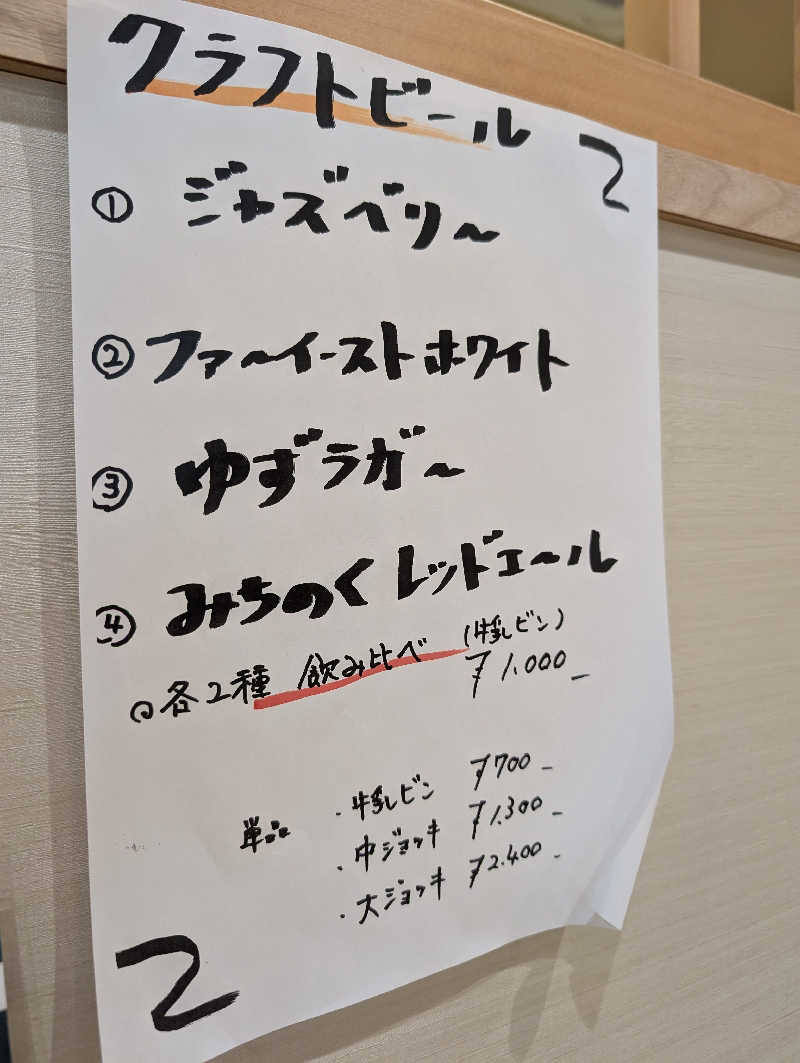 クラフトビール
2
① ジャズベリー
② ファーイーストホワイト
③ ゆずラガー
④ みちのくレッドエール
○各2種 飲み比べ (牛乳ビン) ¥1.000-
単品
・牛乳ビン ¥700-
・中ジョッキ ¥1.300-
・大ジョッキ ¥2.400-
2